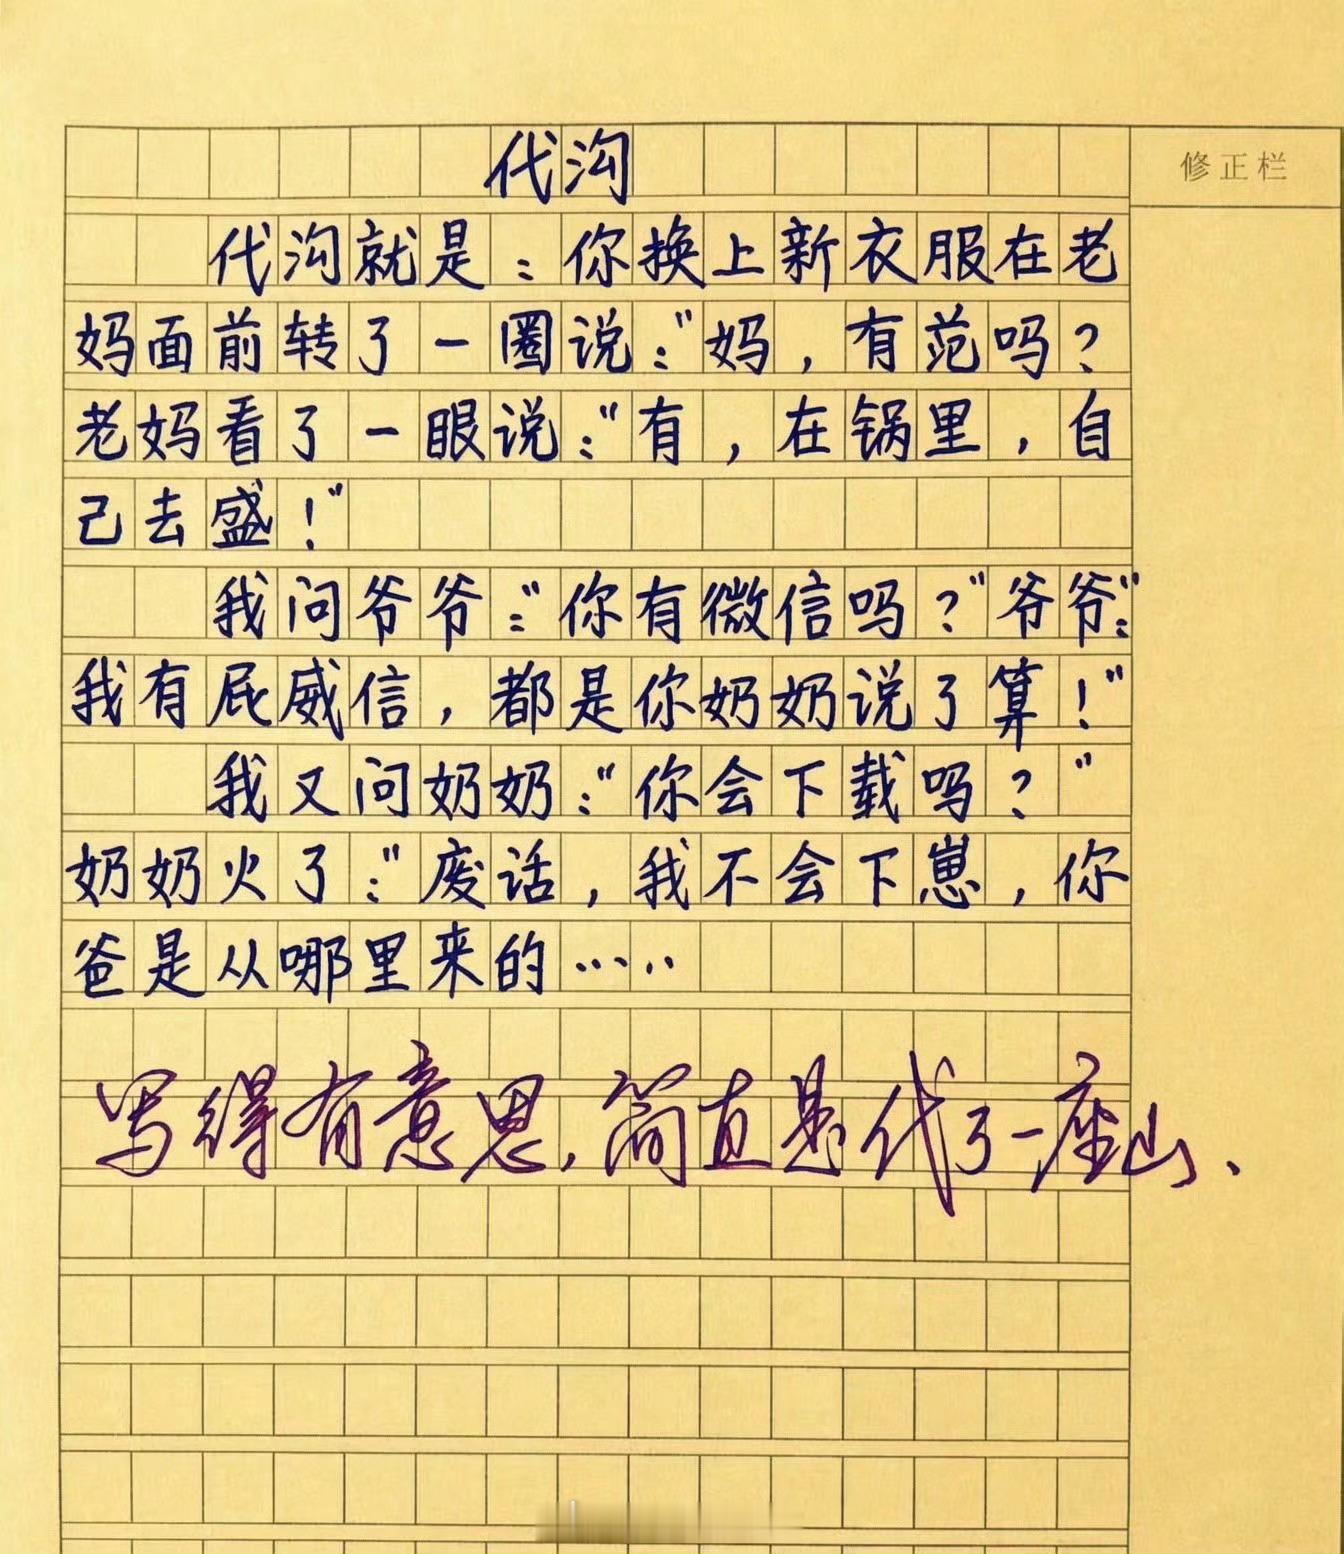 代沟
修正栏
代沟就是：你换上新衣服在老
妈面前转了一圈说："妈，有范吗？
老妈看了一眼说："有，在锅里，自
己去盛！"
我问爷爷："你有微信吗？"爷爷："
我有屁威信，都是你奶奶说了算！"
我又问奶奶："你会下载吗？"
奶奶火了："废话，我不会下崽，你
爸是从哪里来的……
写得有意思，简直是代了一座山、